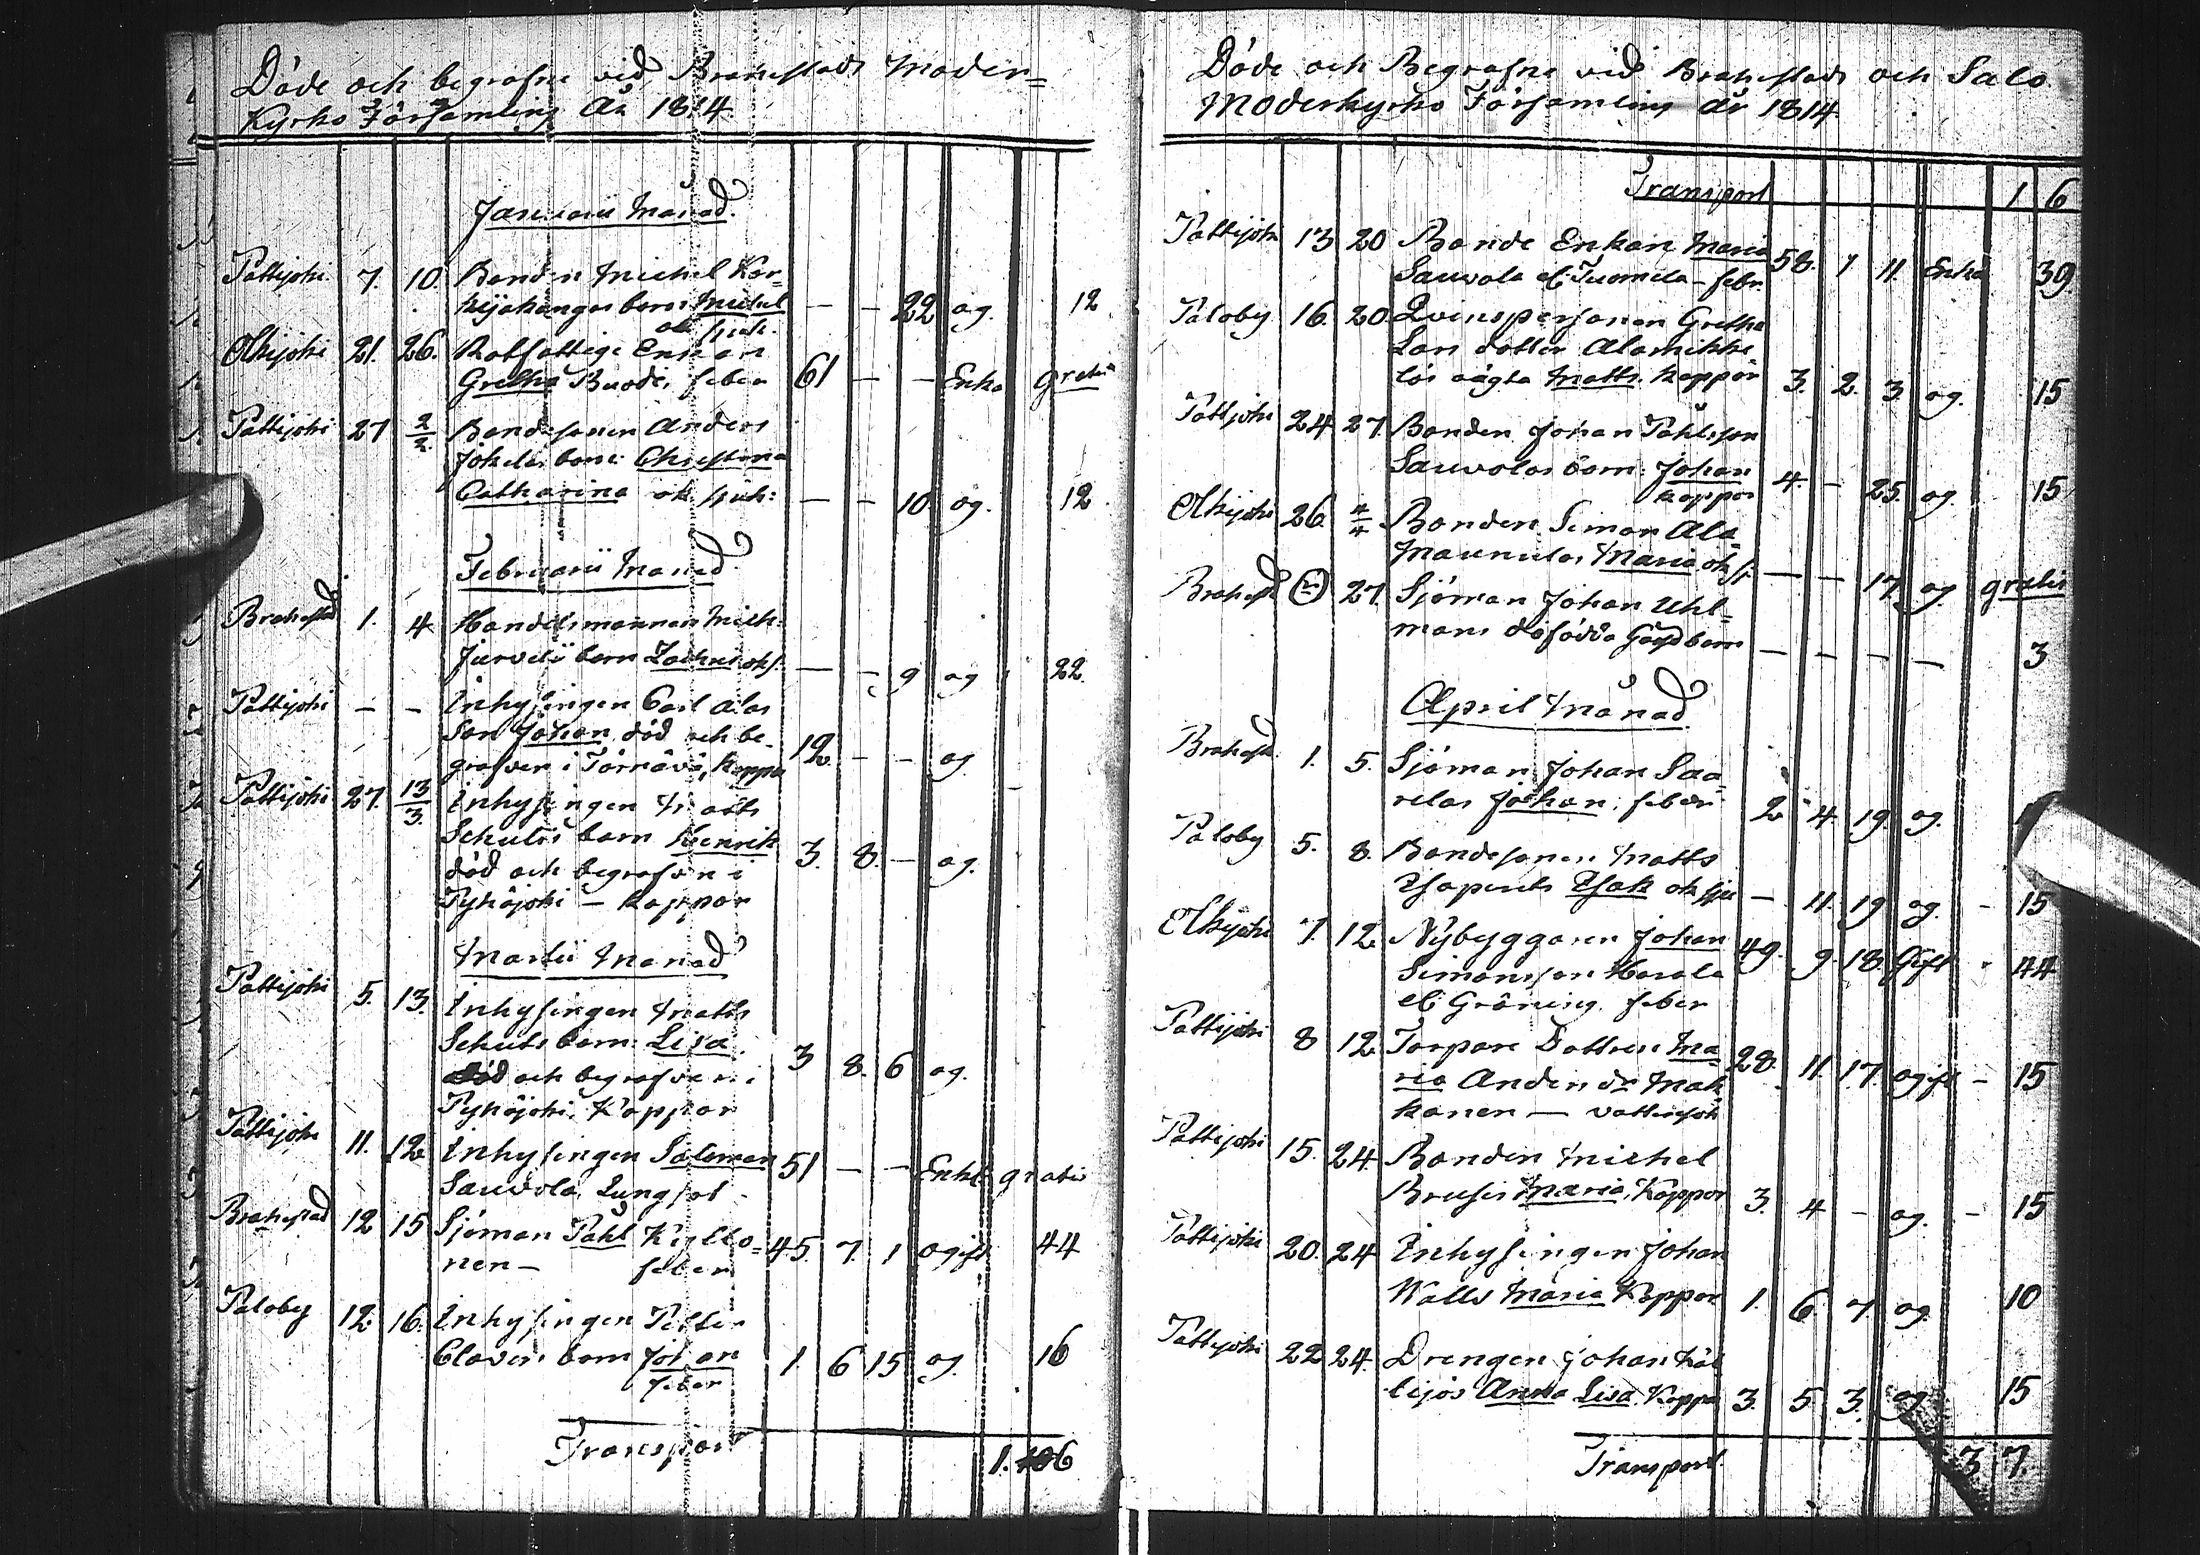 Döde och begrafne vid Brahestads Moder=
Kyrko Församling År 1814.
Januarii Månad.
Pattijoki 7. 10. Bonden Michel Kor-
kijakangas barn Michel — — 22 og. 12
ok sjuk.
Olkijoki 21. 26. Rotfattige Enkan
Gretha Buode, feber 61 — — Enka gratis
Pattijoki 27 2/2. Bondesonen Anders
Jokelas barn Christina
Catharina ok sjuk: — — 10 og. 12
Februarii Månad.
Brahestad 1. 4 Handelsmannen Mich.
barn ok s. — — 9 og 22.
Pattijoki — — Inhysingen Carl Alas
Son Johan död och be-
grafven i Törnävä, Koppor 12. — — og
Pattijoki 27. 13/3. Inhysingen Matts
Schutes barn Henrik 3. 8. — og.
död och begrafven i
Pyhäjoki — Koppor
Martii Månad
Pattijoki 5. 13. Inhysingen Matts
Schuts barn Lisa 3 8. 6 og.
död och begrafven i
Pyhäjoki. Koppor
Pattijoki 11. 12. Inhysingen Salomon 51 — — Enkl. gratis
Sauvola, Lungsot
Brahestad 12 15 Sjöman Påhl 45. 7. 1 ogift 44
nen — feber
Saloby 12. 16. Inhysingen Petter
barn Johan 1. 6 15 og. 16
feber
Transport 1. 6
Döde och Begrafne vid Brahestads och Salo
Moderkyrko Församling år 1814.
Transport 1 6
Pattijoki 13 20 Bonde Enkan Maria 58. 1 11. Enka 39
Sauvola el. Tuomela — feber
Saloby 16. 20. Qvinspersonen Gretha
Lars dotter Alamikku
lös oägta Matts. Koppor 3. 2. 3 og. 15
Pattijoki 24 27. Bonden Johan Påhlsson
Sauvolas barn: Johan 4. — 25. og 15
koppor
Olkijoki 26. 4/4 Bonden Simon Ala
Maunulas Maria ok sj. — — 17. og gratis
Brahest. 27. Sjöman Johan Uhl=
mans dödfödda barn — — — — 3
April Månad.
Brahest. 1. 5. Sjöman Johan Saa
relas Johan, feber 2 4. 19 og.
Saloby 5. 8. Bondesonen Matts
Isak ok sju — 11. 19 og. — 15
Olkijoki 7. 12. Nybyggaren Johan 49. 9 18. Gift 44
Simonsson Harala
el. Gröning. feber
Pattijoki 8 12. Torpare Dottren Ma 28. 11. 17. ogift — 15
ria Anders dr Mak
konen — vattusot
Pattijoki 15. 24. Bonden Michel
Brusis Maria, Koppor 3. 4 — og. — 15
Pattijoki 20. 24 Inhysingen Johan
Walls Maria Koppor 1. 6 7 og. 10
Pattijoki 22 24. Drengen Johan
Anna Lisa Koppo 3. 5 3. og 15
Transport 3 7.